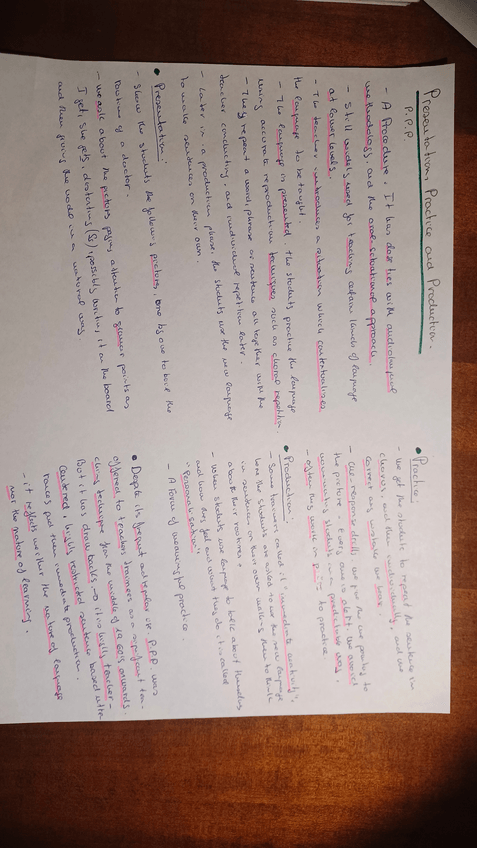 Presentation, Practice and Production.
P.P.P
- A Procedure. It has ties with audiolingual
methodology, and the oral-situational approach.
- Still widely used for teaching certain kinds of language
at lower levels.
- The teacher introduces a situation which contextualises
the language to be taught.
- The language is presented. The students practice the language
using accurate reproduction techniques such as choral repetition.
- They repeat a word, phrase or sentence all together with the
teacher conducting, and individual repetition later.
- Later in a production phase, the students use the new language
to make sentences on their own.
• Presentation:
- Show the students the following pictures, one by one to build the
routine of a doctor.
- We ask about the pictures paying attention to grammar points as
I get, she gets, possibly writing it on the board
and then giving the model in a natural way
• Practice:
- We get the students to repeat the sentence in
chorus, and then individually, and we
correct any mistake we hear.
- Cue-response drills
the picture.
communicating students in a predictable way.
- Often they work in to practice.
• Production:
- Some trainers called it 'immediate creativity',
here the students are asked to use the new language
in sentences on their own making them to think
about their routines.
- When students use language to talk about themselves
and how they feel and what they do it is called
"Personalisation".
- A form of meaningful practice.
• Despite its use, P.P.P was
offered to teacher trainees as a significant tea-
ching technique from the middle of 1960s onwards.
But it has drawbacks → it is highly teacher-
centered, highly restricted, sentence based utte-
rances and then immediate production.
- it reflects neither the nature of language
nor the nature of learning.